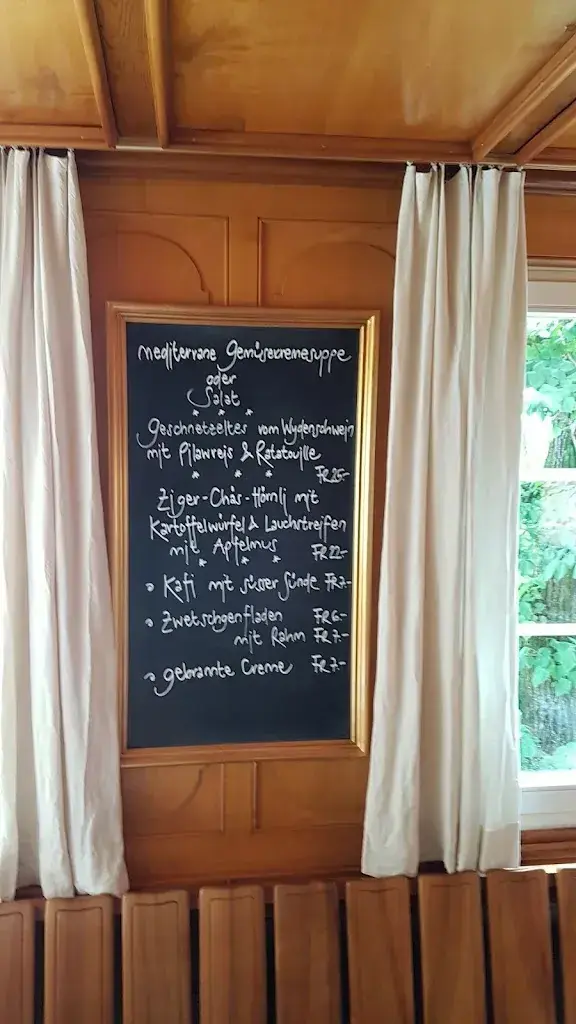 mediterrane Gemüsecremesuppe
oder
Salat
* * *
Geschnetzeltes vom Wydenschwein
mit Pilawreis & Ratatouille
FR 25.-
* * *
Ziger-Chäs-Hörnli mit
Kartoffelwürfel & Lauchstreifen
mit Apfelmus FR 22.-
* * *
Kafi mit süsser Sünde FR 7.-
Zwetschgenfladen FR 6.-
mit Rahm FR 7.-
gebrannte Creme FR 7.-